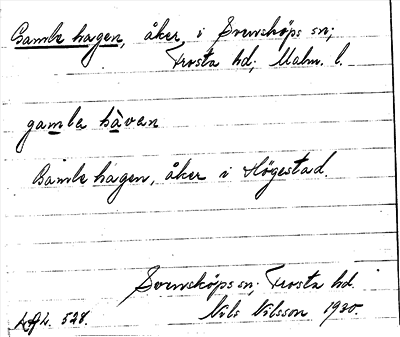 Gamle hagen, åker i Svensköps sn;
Frosta hd; Malm. l.
gamla hàvan
Gamle hagen, åker i Högestad.
Svensköps sn, Frosta hd.
Nils Nilsson 1930.
528.